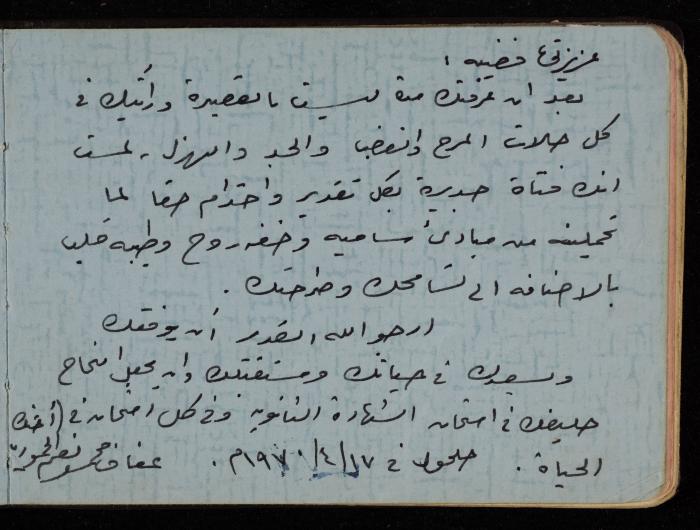 عزيزتي فضيه ،
بعد ان عرفتك مدة ليست بالقصيرة ورأيتك في
كل حالات المرح والغضب والجد والهزل، لمست
انك فتاة جديرة بكل تقدير واحترام حقا لما
تحملينه من مبادئ ساميه وخفه روح وطيبه قلب
بالاضافه الى تسامحك وصراحتك .
ارجو الله القدير أن يوفقك
ويسعدك في حياتك ومستقبلك وان يجعل النجاح
حليفك في امتحان الشهادة الثانوية وفي كل امتحان في
الحياة . حلحول في ١٧/٤/١٩٧٠م . أختك
عفاف